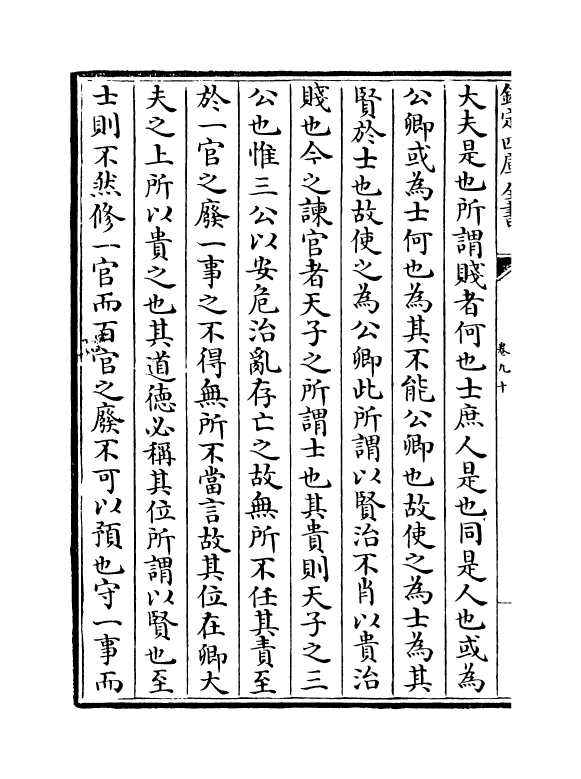 欽定四庫全書
卷九十
大夫是也所謂賤者何也士庶人是也同是人也或為
公卿或為士何也為其不能公卿也故使之為士為其
賢於士也故使之為公卿此所謂以賢治不肖以貴治
賤也今之諫官者天子之所謂士也其貴則天子之三
公也惟三公以安危治亂存亡之故無所不任其責至
於一官之廢一事之不得無所不當言故其位在卿大
夫之上所以貴之也其道德必稱其位所謂以賢也至
士則不然修一官而百官之廢不可以預也守一事而